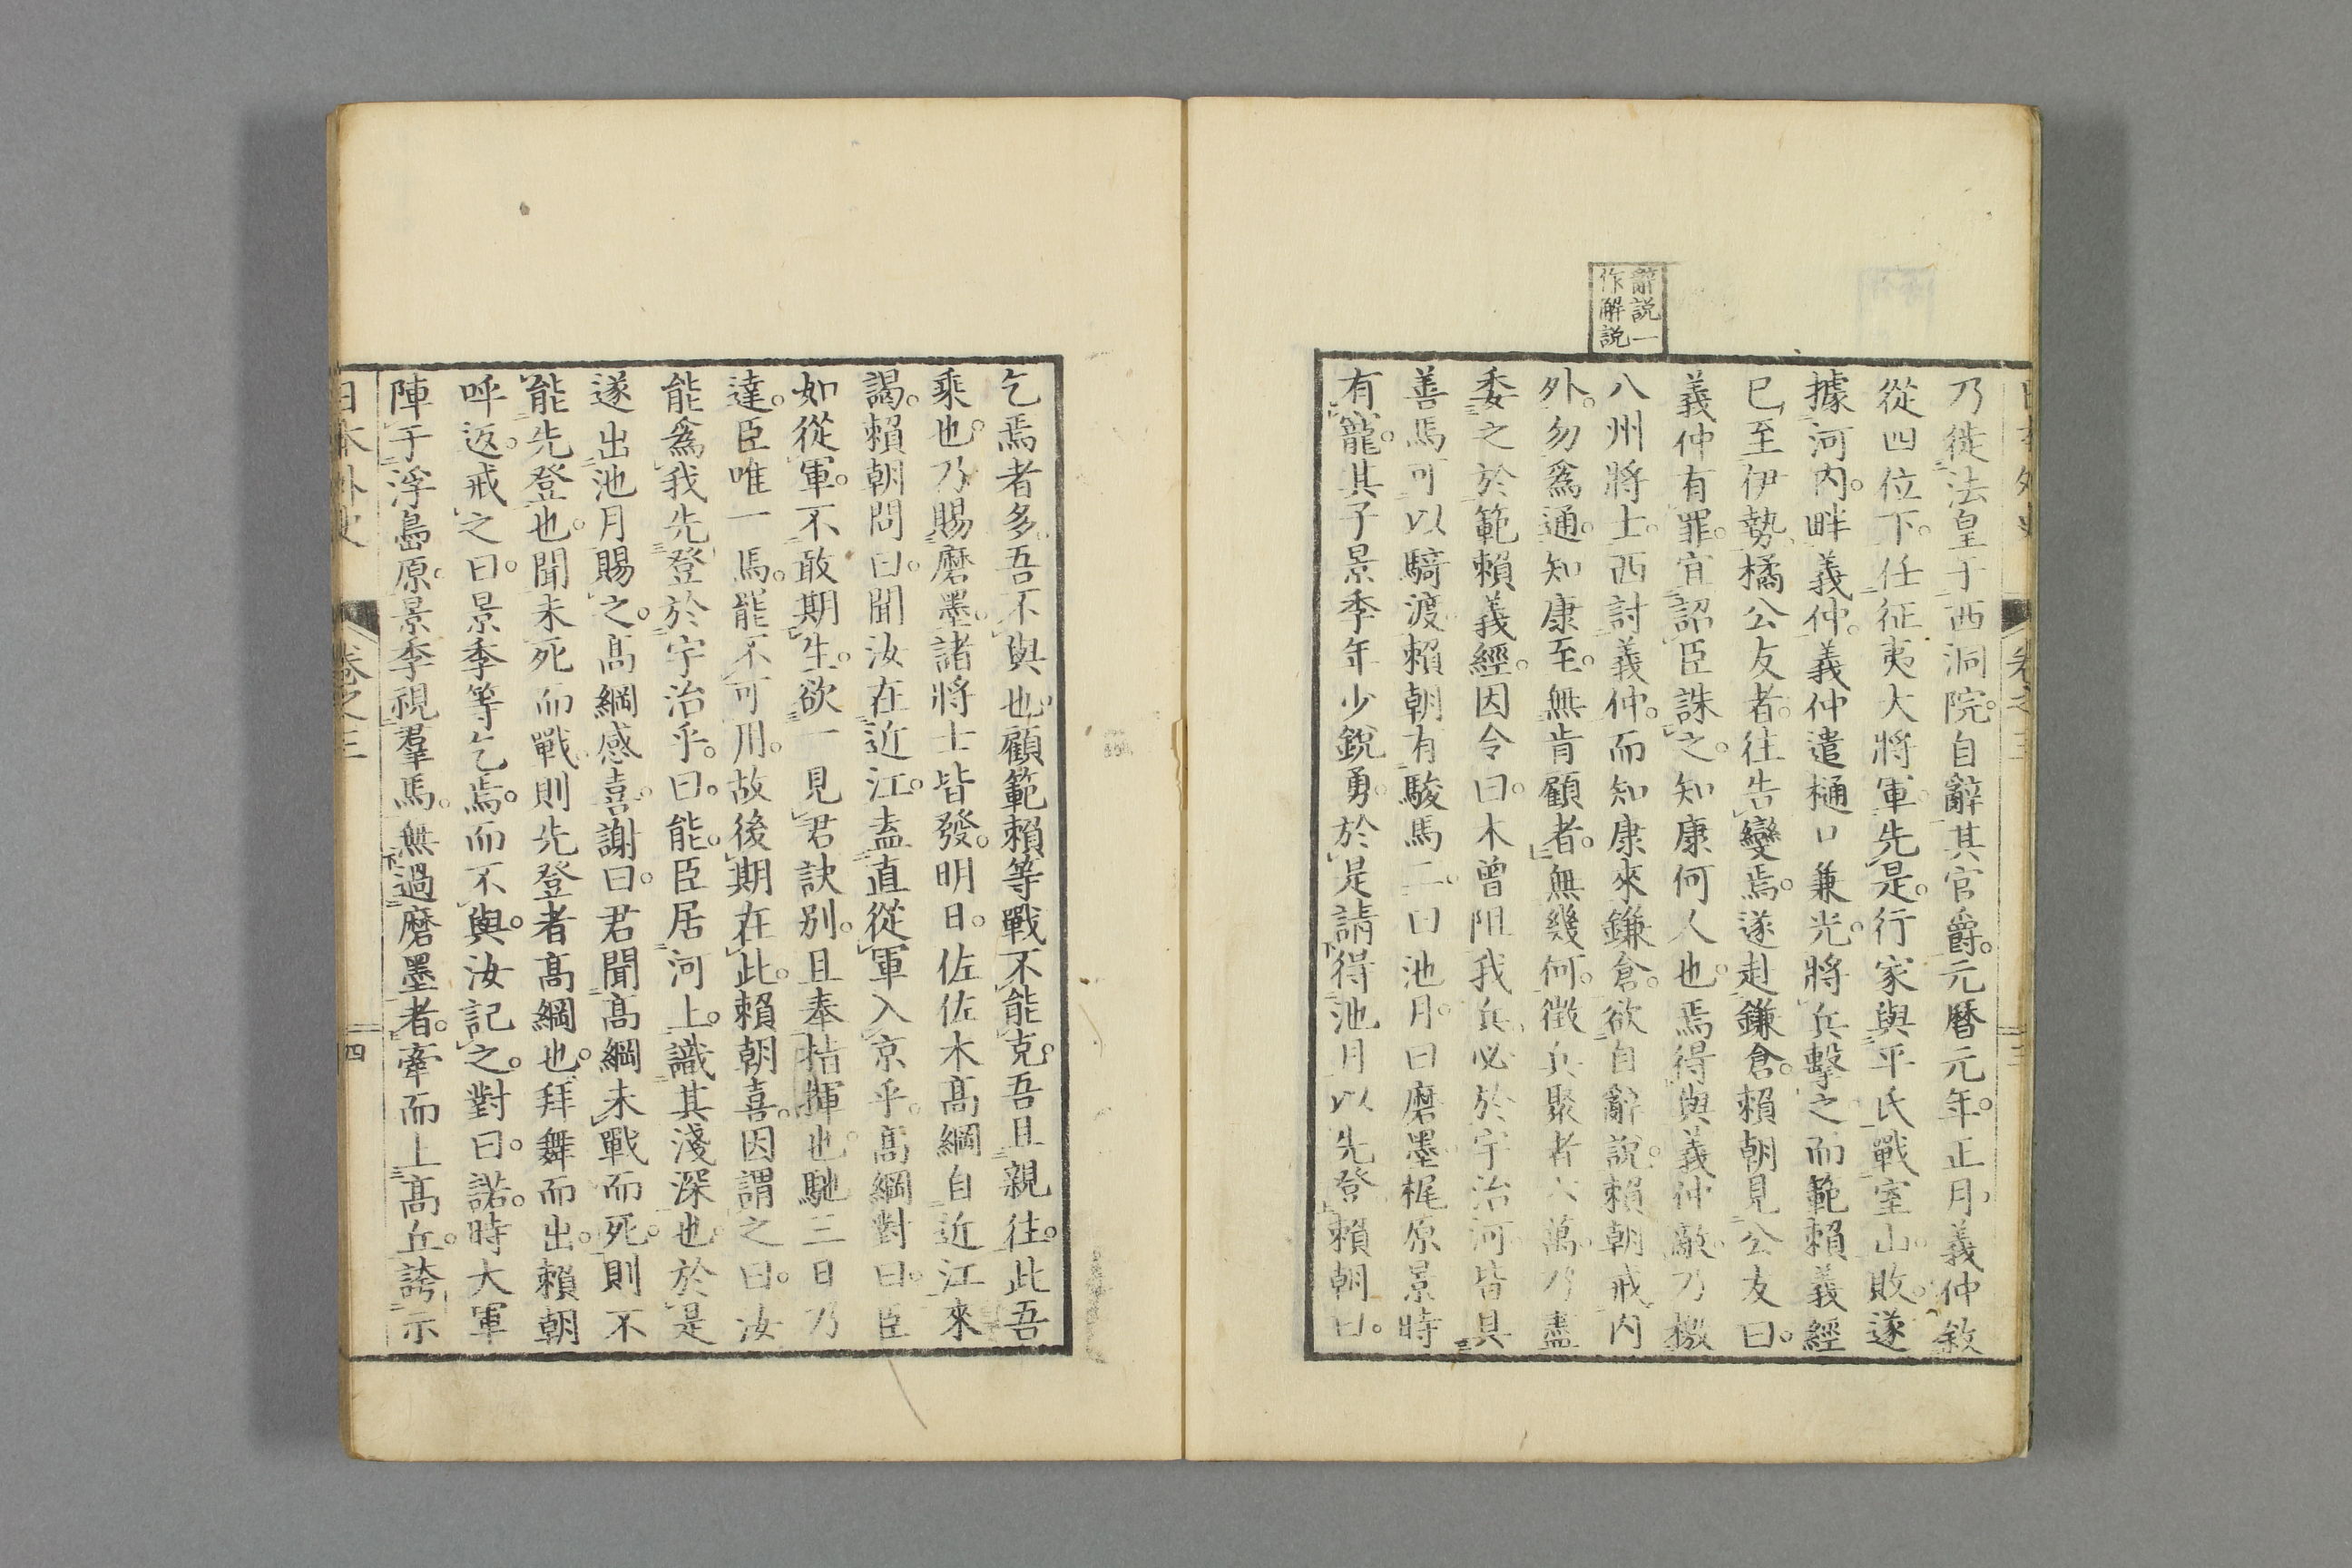 辭説一
作解説
乃徙法皇于西洞院。自辭其官爵。元曆元年。正月義仲敘
從四位下。任征夷大將軍。先是。行家與平氏戰室山。敗。遂
據河内。畔義仲。義仲遣樋口兼光。將兵擊之。而範賴義經
已至伊勢。橘公友者。往告變焉。遂赴鎌倉。賴朝見公友曰。
義仲有罪。宜詔臣誅之。知康何人也。焉得與義仲敵。乃檄
八州將士。西討義仲。而知康來鎌倉。欲自辭說。賴朝戒内
外。勿爲通。知康至。無肯顧者。無幾何。徵兵聚者六萬。乃盡
委之於範賴義經。因令曰。木曾阻我兵。必於宇治河。皆具
善馬可以騎渡。賴朝有駿馬二。曰池月。曰磨墨。梶原景時
有寵。其子景季年少銳勇。於是請得池月以先登。賴朝曰。
乞焉者多。吾不與也。顧範賴等戰不能克。吾且親往。此吾
乘也。乃賜磨墨。諸將士皆發。明日。佐佐木高綱自近江來
謁。賴朝問曰。聞汝在近江。盍直從軍入京乎。高綱對曰。臣
如從軍。不敢期生。欲一見君訣別。且奉指揮也。馳三日乃
達。臣唯一馬。罷不可用。故後期在此。賴朝喜。因謂之曰。汝
能爲我先登於宇治乎。曰。能。臣居河上。識其淺深也。於是
遂出池月賜之。高綱感喜。謝曰。君聞高綱未戰而死。則不
能先登也。聞未死而戰。則先登者高綱也。拜舞而出。賴朝
呼返。戒之曰。景季等乞焉。而不與。汝記之。對曰。諾。時大軍
陣于浮島原。景季視羣馬。無過磨墨者。牽而上高丘。誇示
日本外史 卷之三 四